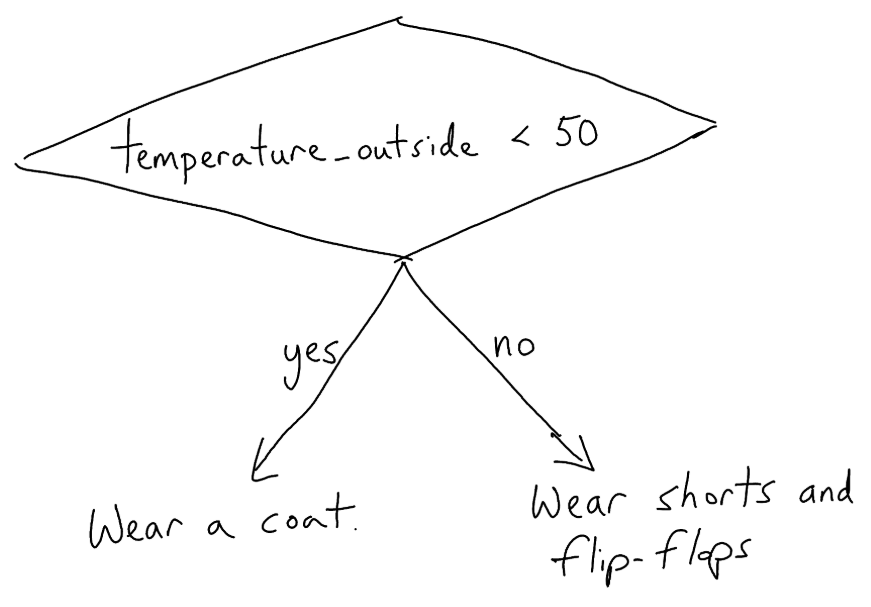 temperature_outside < 50
yes
no
Wear a coat.
Wear shorts and
flip-flops